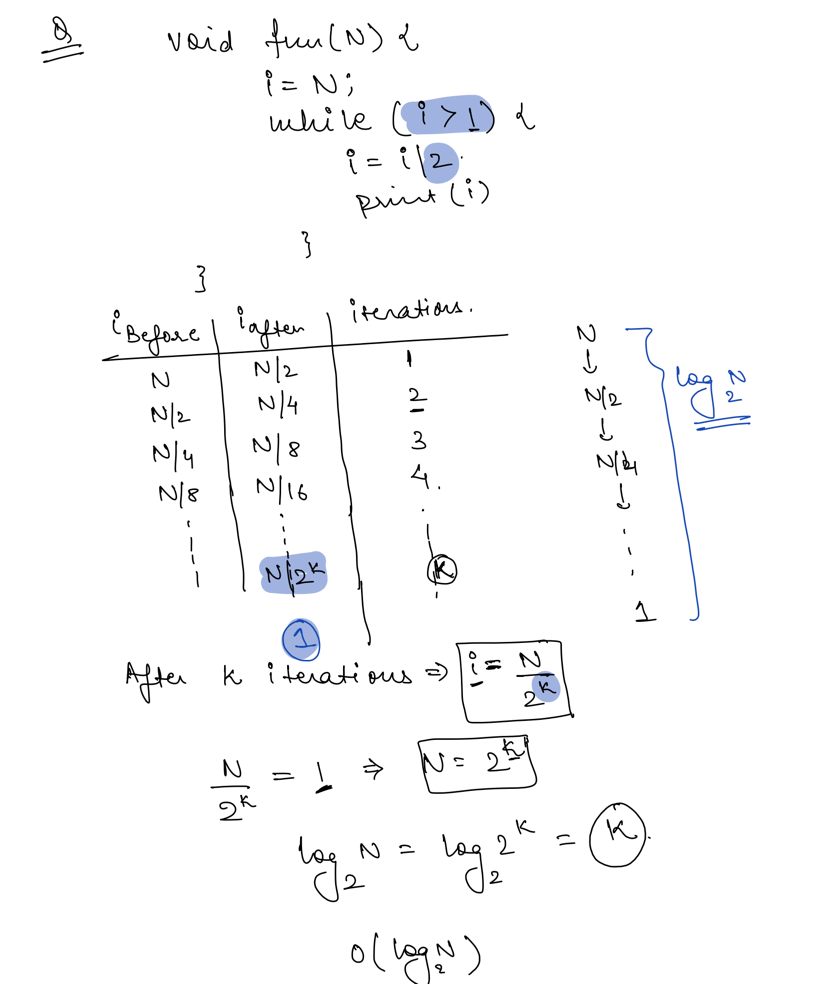 Q
void fun(N) {
i = N;
while (i > 1) {
i = i/2
print(i)
}
}
iBefore | iafter | iterations.
N N/2 1
N/2 N/4 2
N/4 N/8 3
N/8 N/16 4.
N/2^k k
1
N
↓
N/2
↓
N/4
↓
1
log₂N
After k iterations ⇒ i = N/2^k
N/2^k = 1 ⇒ N = 2^k
log₂ N = log₂ 2^k = k.
O(log₂N)